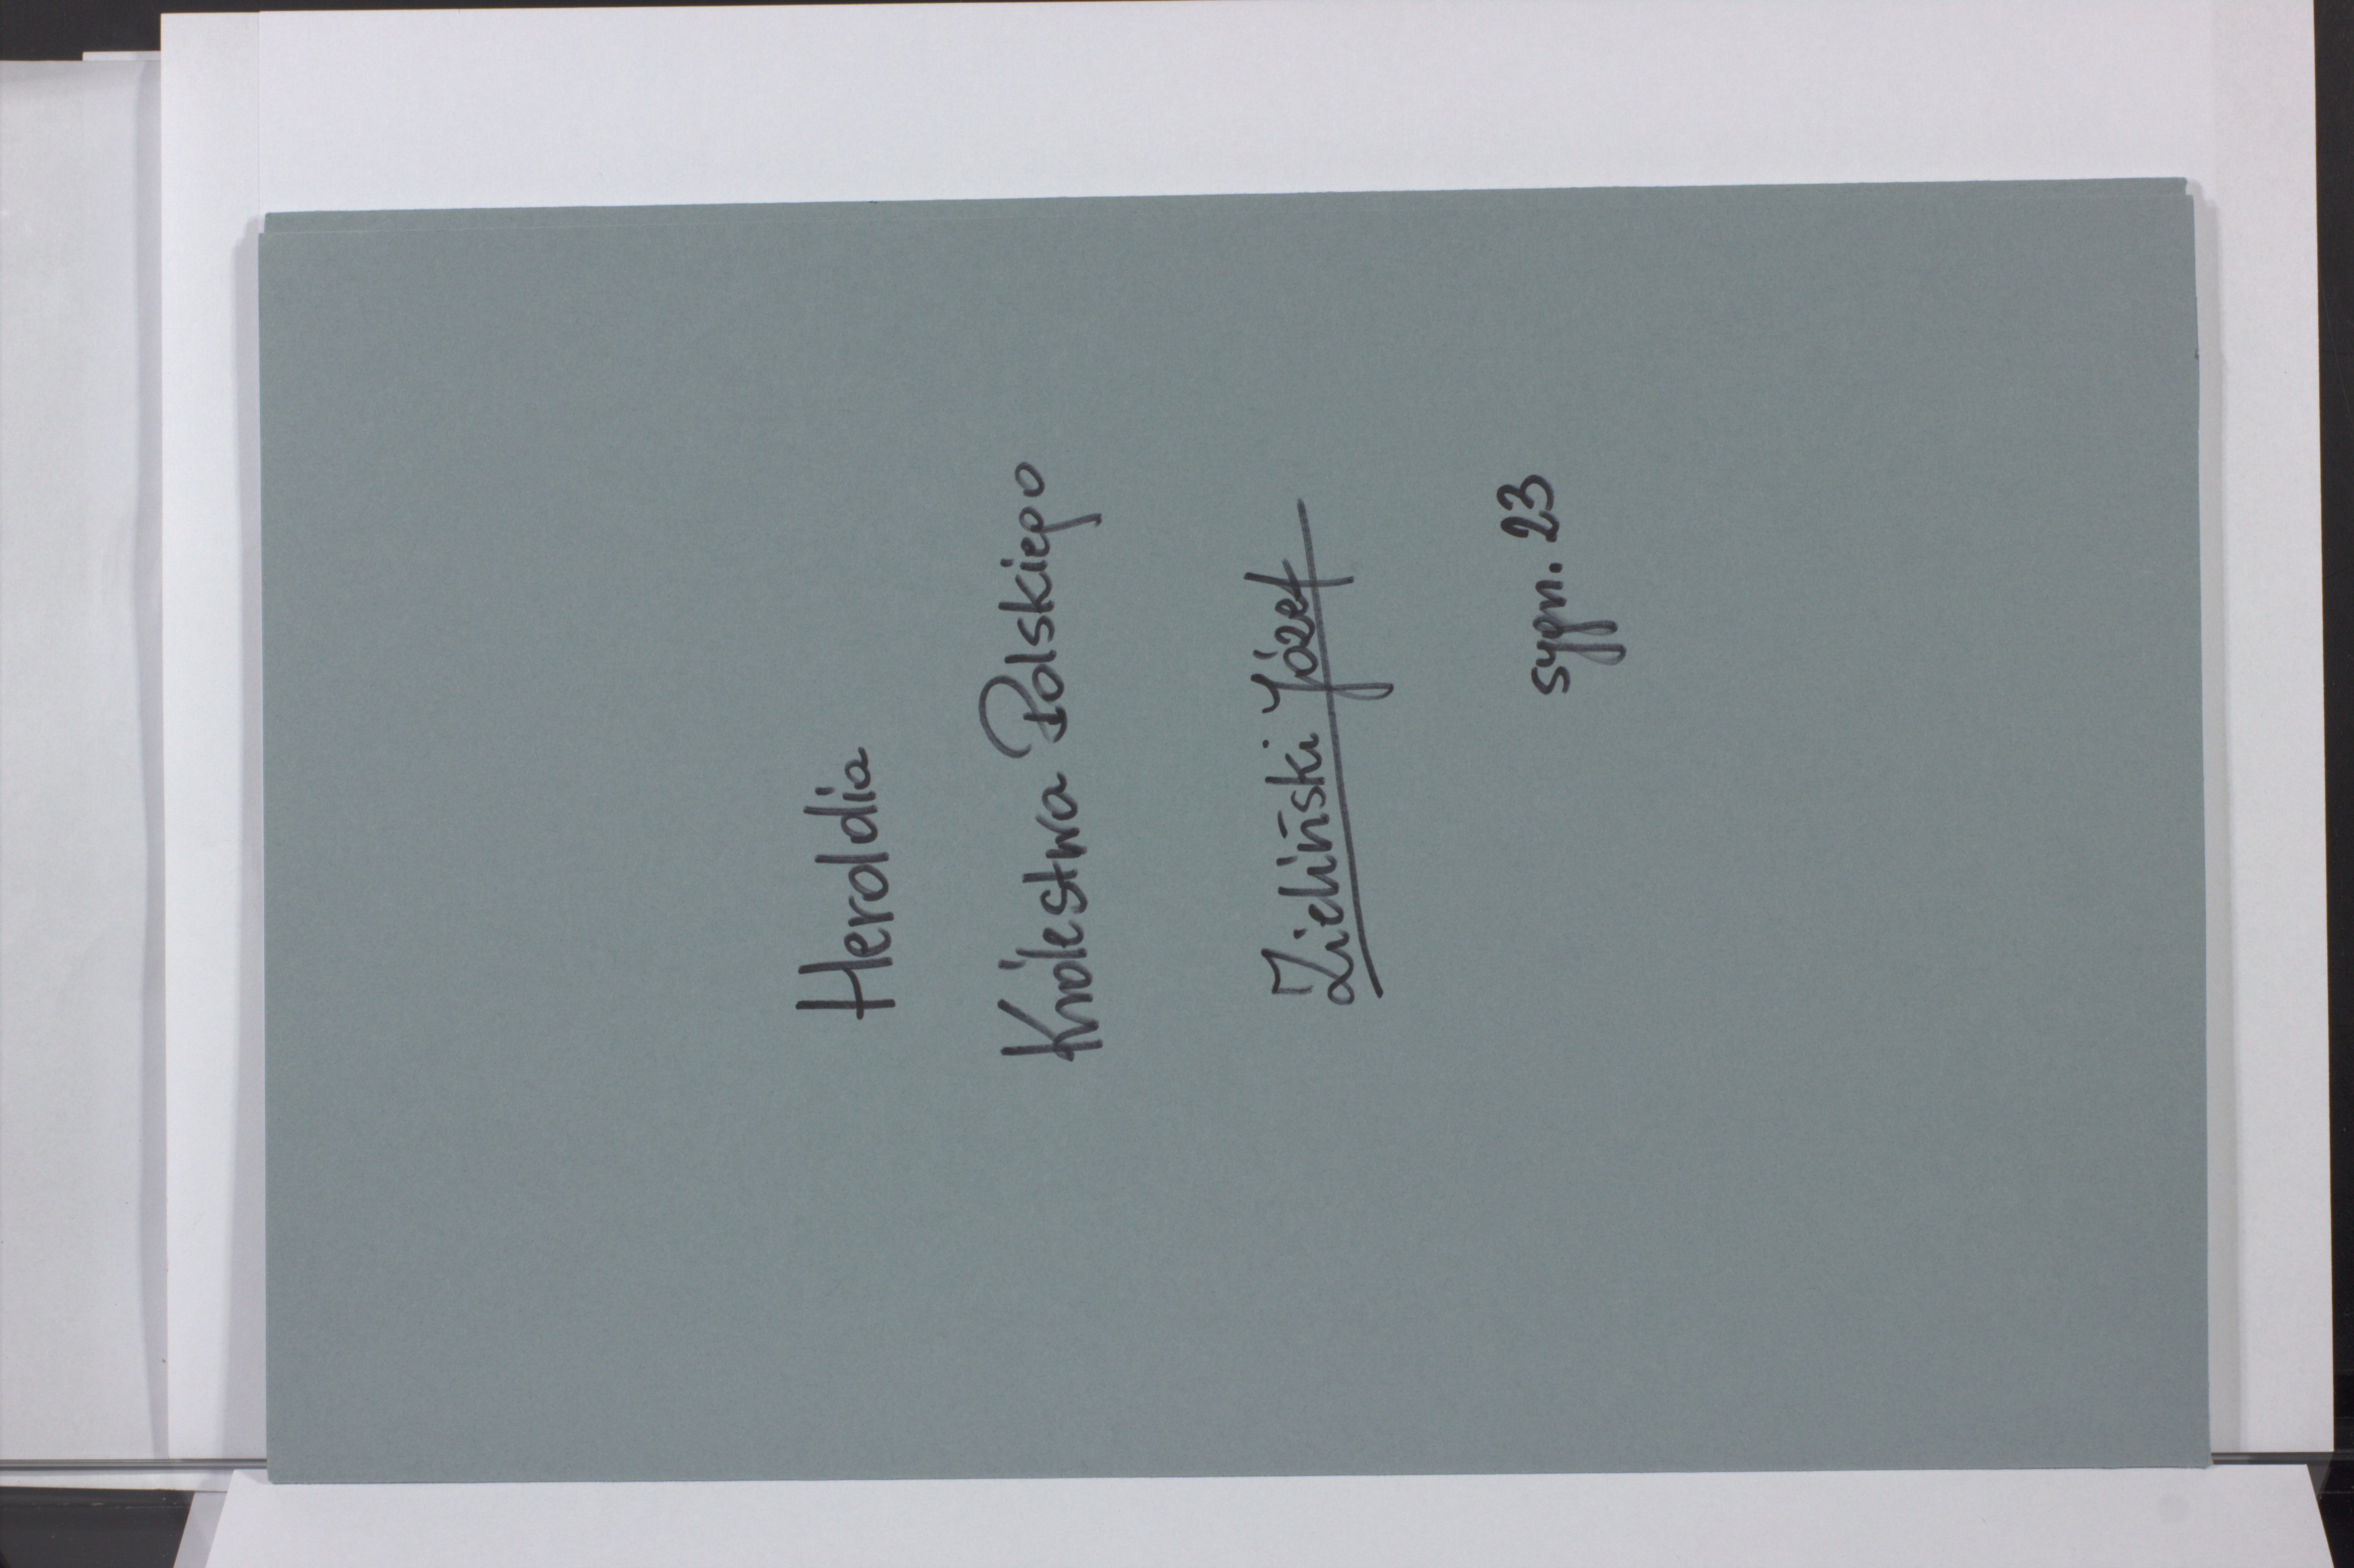 Heroldia
Królestwa Polskiego
Zieliński Józef
sygn. 23